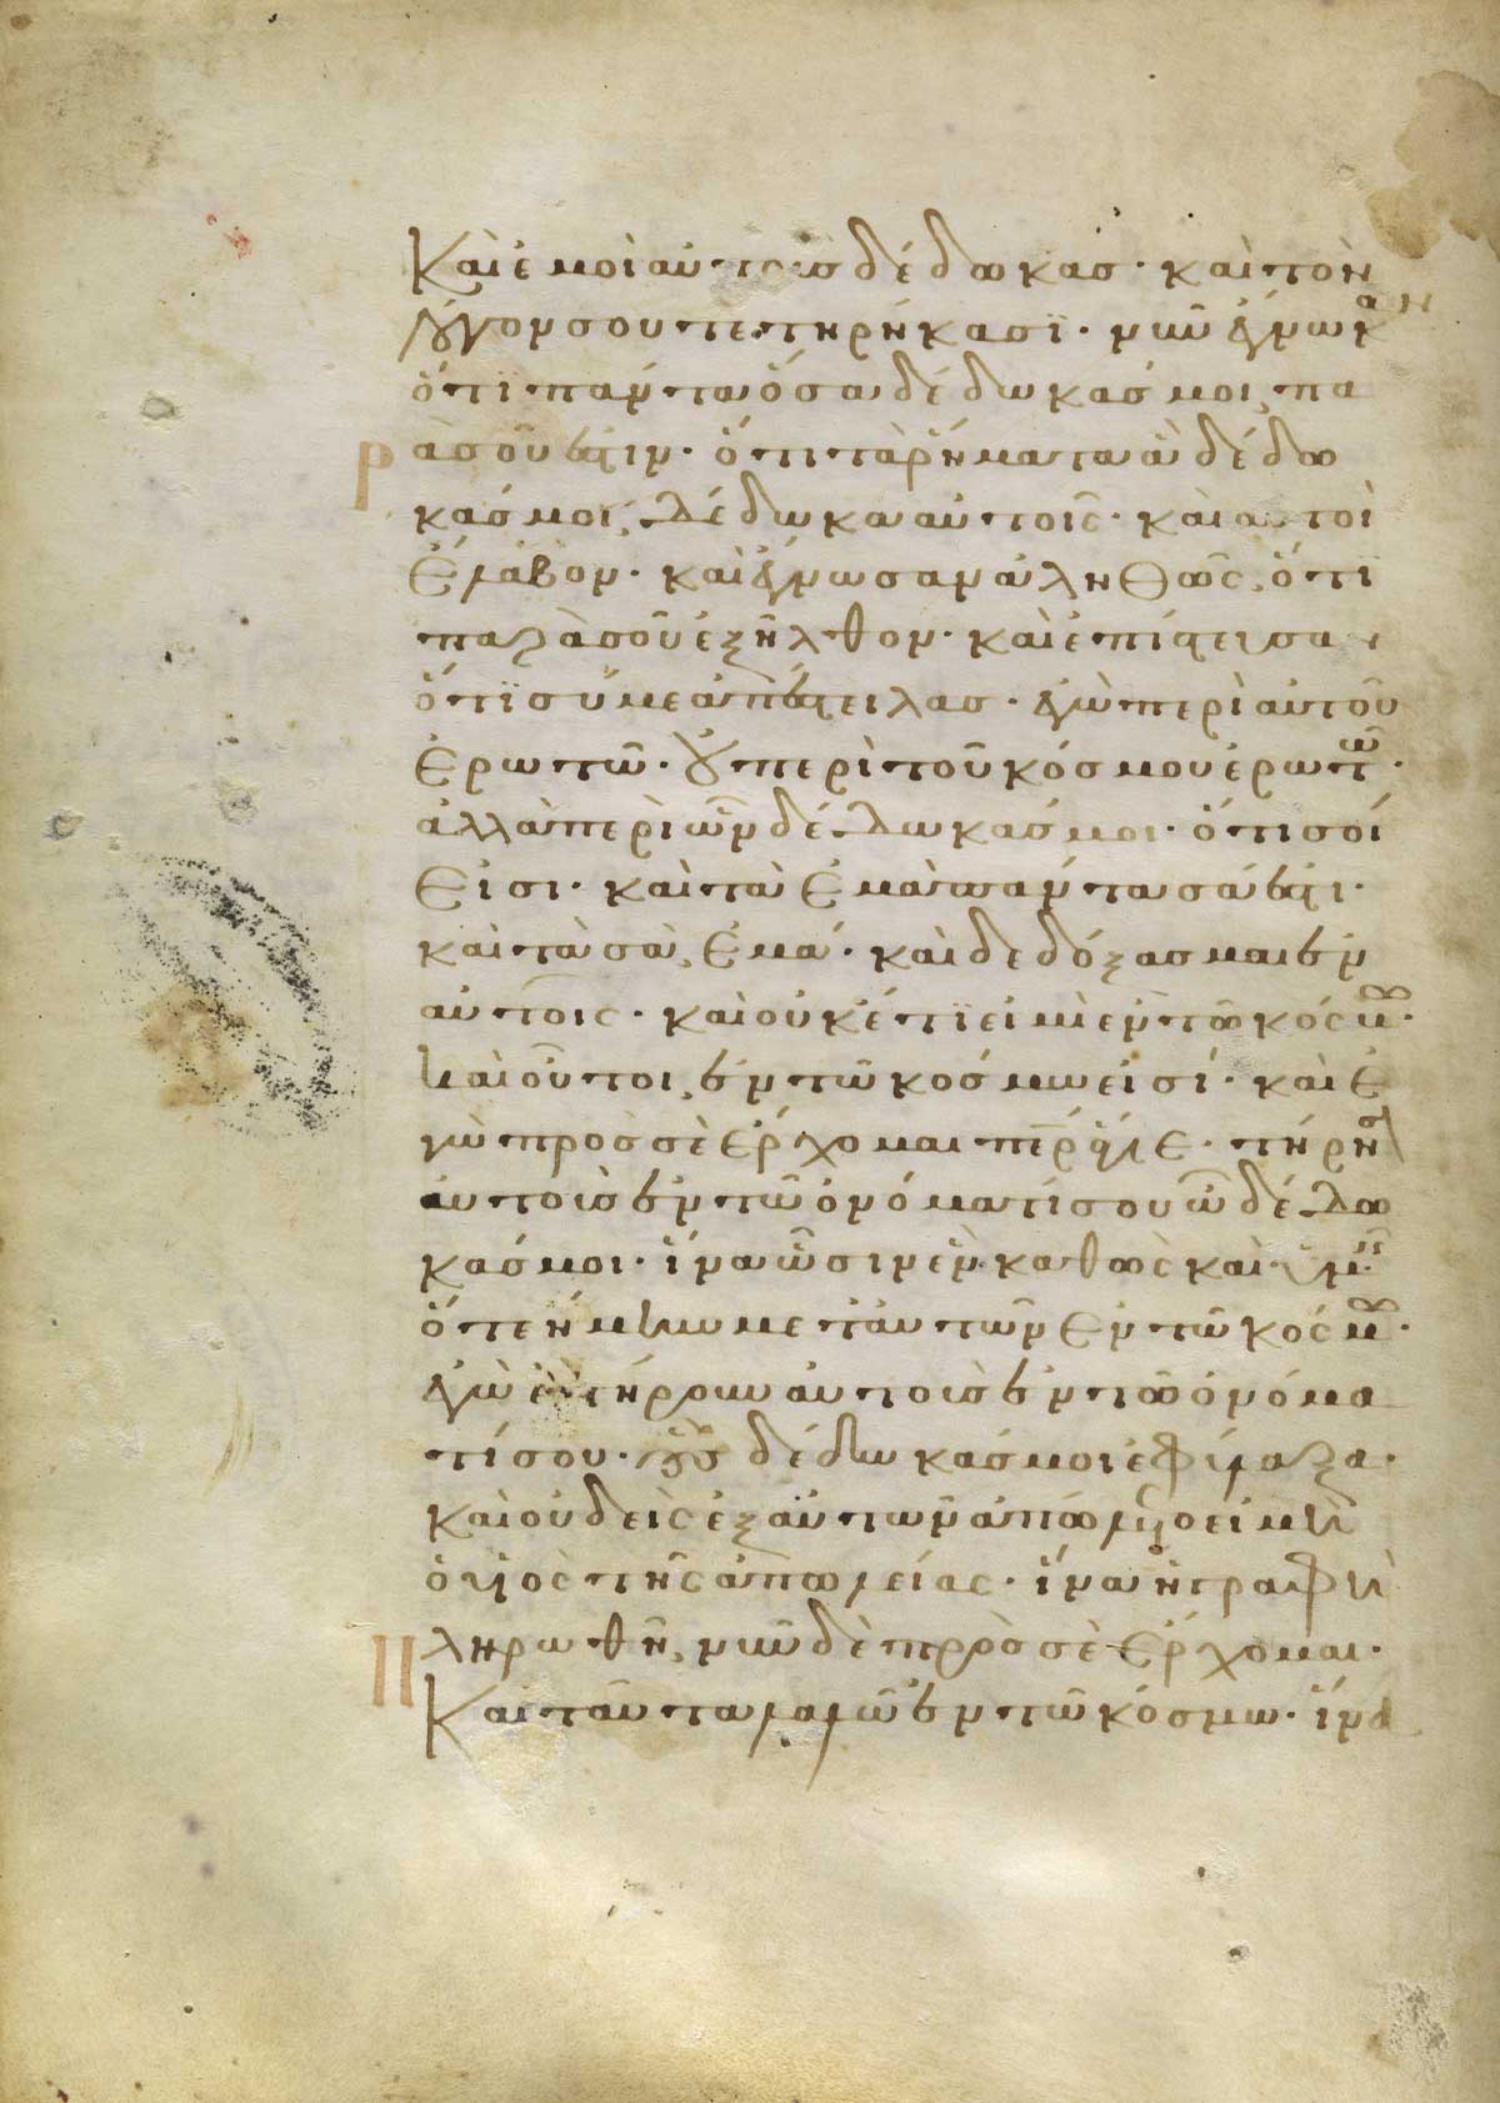 Καὶ ἐμοὶ αὐτοὺς δέδωκας· καὶ τὸν
λόγον σου τετηρήκασϊ· νῦν ἔγνωκαν
ὅτι πάντα ὅσα δέδωκάς μοι, πα
ρὰ σοῦ ἐστιν· ὅτι τὰ ῥήματα ἃ δέδω
κάς μοι, δέδωκα αὐτοῖς· καὶ αὐτοὶ
ἔλαβον· καὶ ἔγνωσαν ἀληθῶς, ὅτϊ
παρὰ σοῦ ἐξῆλθον· καὶ ἐπίστευσαν
ὅτϊ σύ με ἀπέστειλας· ἐγὼ περὶ αὐτοῦ
ἐρωτῶ· οὐ περὶ τοῦ κόσμου ἐρωτῶ·
ἀλλὰ περὶ ὧν δέδωκάς μοι· ὅτι σοί
εἰσι· καὶ τὰ ἐμὰ πάντα σά ἐστι·
καὶ τὰ σὰ, ἐμά· καὶ δεδόξασμαι ἐν
αὐτοῖς· καὶ οὐκέτϊ εἰμὶ ἐν τῶ κόσμω·
καὶ οὗτοι, ἐν τῶ κόσμω εἰσί· καὶ ἐ
γὼ πρὸς σὲ ἔρχομαι περ ἅγιε· τήρησον
αὐτοὺς ἐν τῶ ὀνόματί σου ὧ δέδω
κάς μοι· ἵνα ὦσιν ἓν καθὼς καὶ ἡμεῖς
ὅτε ἤμην μετ' αὐτῶν ἐν τῶ κόσμω·
ἐγὼ ἐτήρουν αὐτοὺς ἐν τῶ ὀνόμα
τί σου· οὓς δέδωκάς μοι ἐφύλαξα·
καὶ οὐδεὶς ἐξ αὐτῶν ἀπώλετο εἰ μὴ
ὁ υἱὸς τῆς ἀπωλείας· ἵνα ἡ γραφὴ
πληρωθῆ, νῦν δὲ πρὸς σὲ ἔρχομαι·
Καὶ ταῦτα λαλῶ ἐν τῶ κόσμω· ἵνα